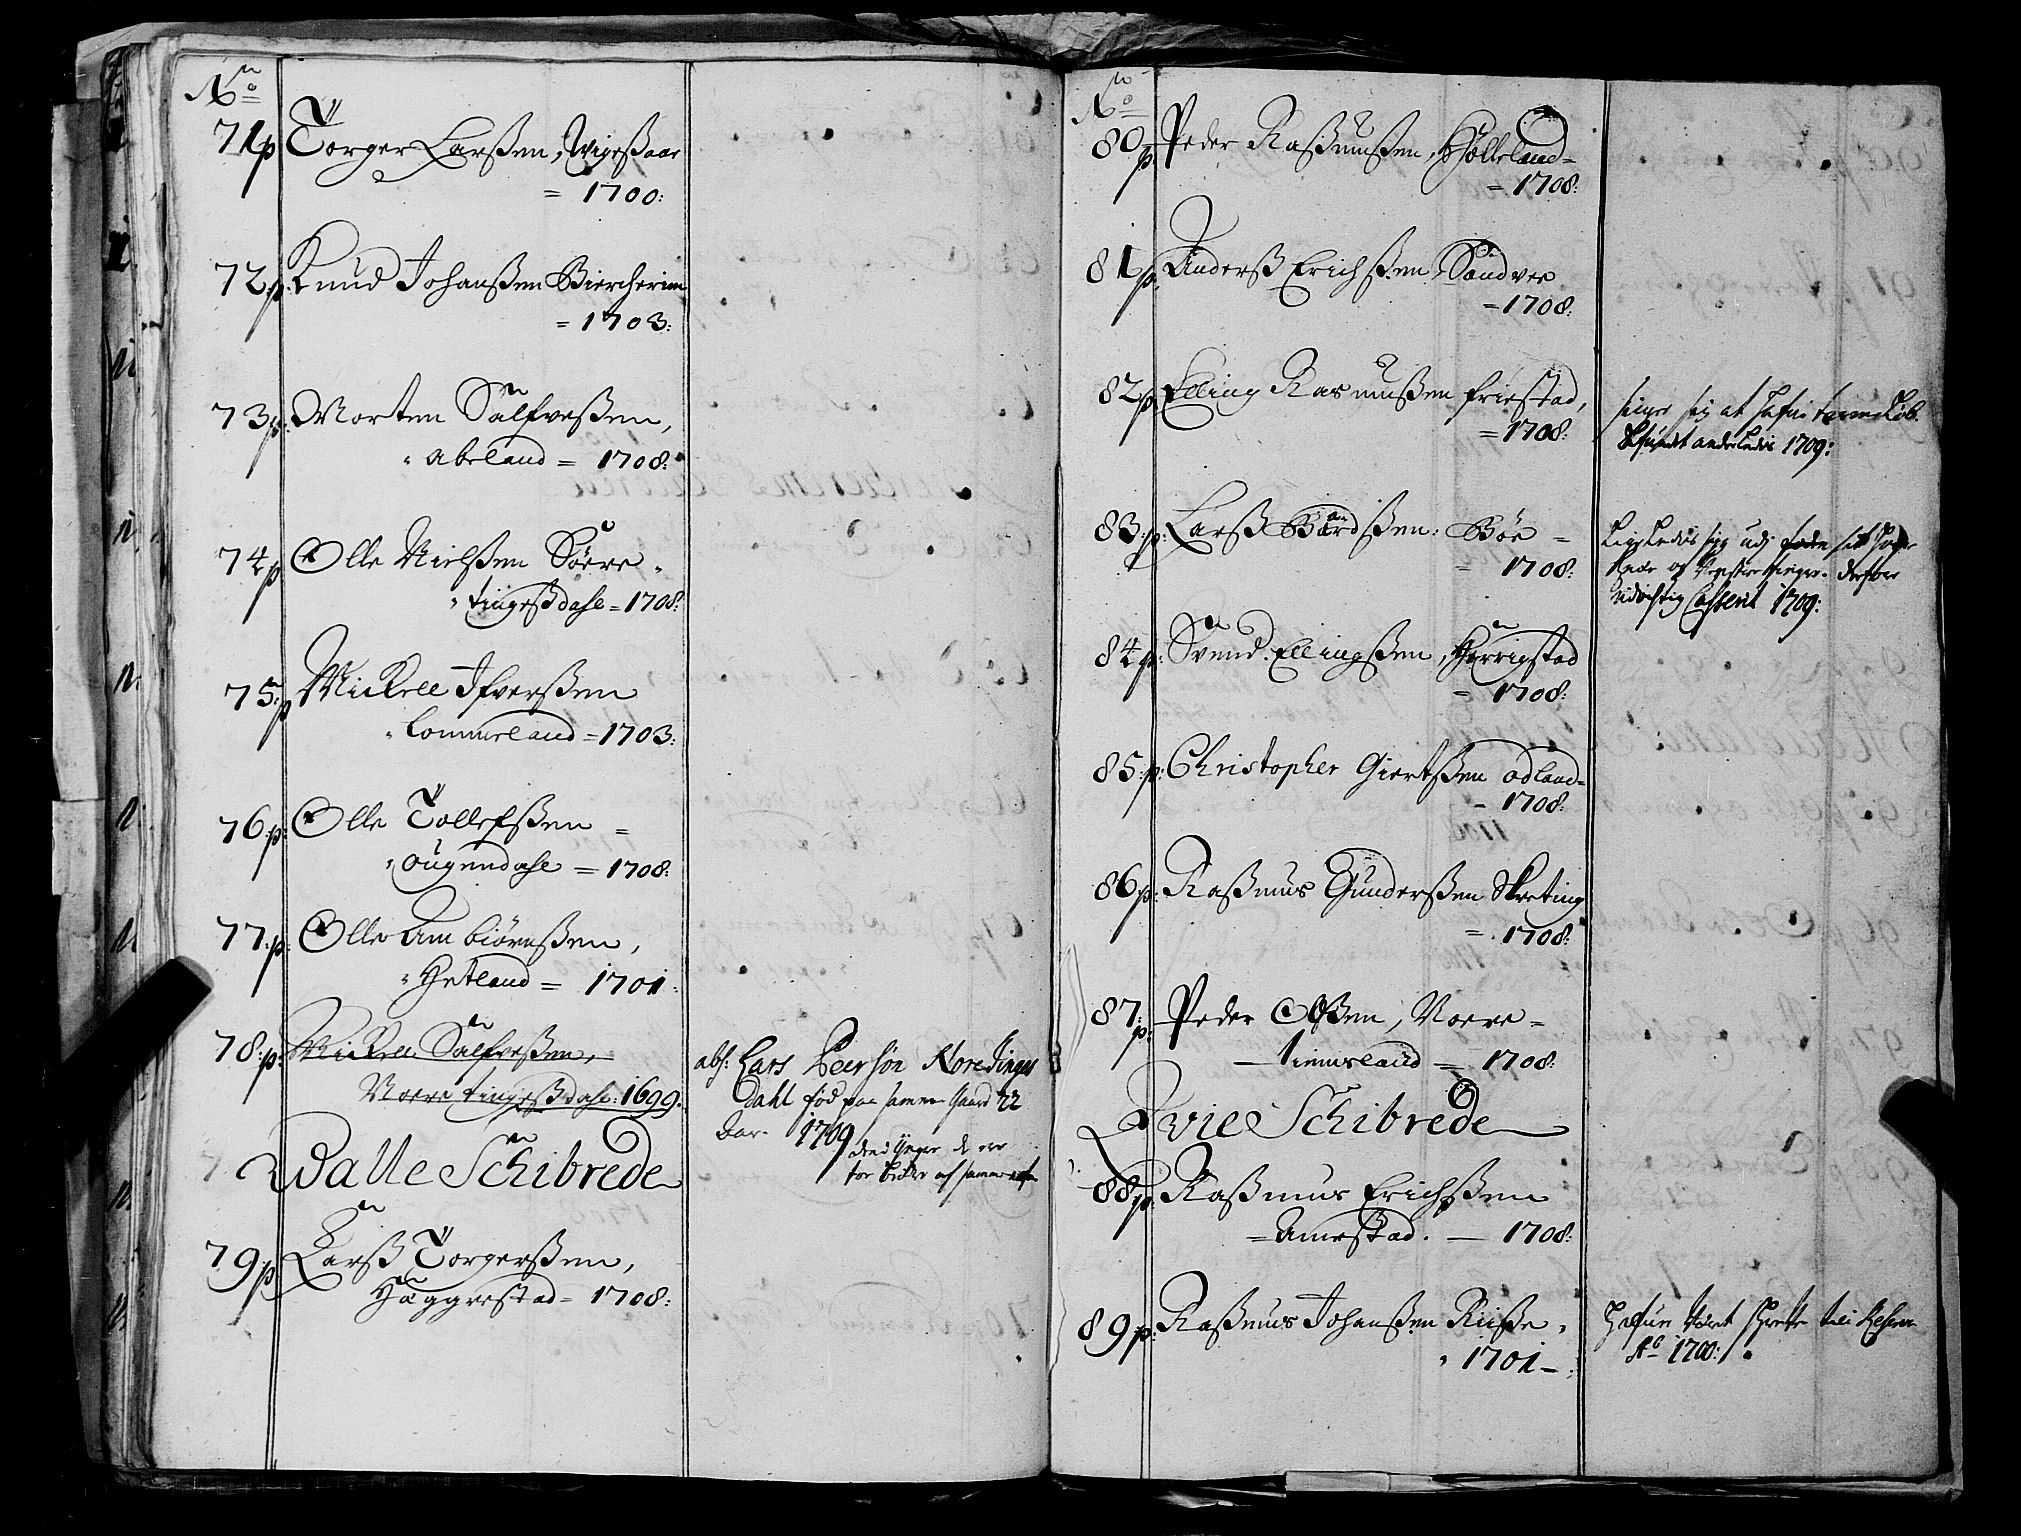 No
71 p Torger Larßen, Wigeßaar
= 1700:
72 p: Knud Johanßen Biercherim
= 1703:
73 p: Morten Sälfveßen,
Abeland = 1708:
74 p Olle Nielßen Söere
tingeßdahl = 1708:
75 p Mickell Ifverßen
Lommeland = 1703:
76 p: Olle Tollefßen =
ougendahl = 1708:
77 p: Olle Ambiörnßen,
Hetland = 1701:
78 p: Mickell Sälfveßen,
Noere tingeßdahl: 1699.
abs: Lars Peersön Noredinges
dahl föd paa samme Gaard 22
Aar. 1709
Dalle Schibrede
79 p Larß Torgerßen,
Häggrestad = 1708:
No
80 p: Peder Raßmusßen, Hölleland =
= 1708:
81 p: Anderß Erichßen, Sandvee
= 1708:
82 p Elling Rasmusßen friestad,
= 1708:
siuger sig at
1709:
83 p: Larß Bärdßen: Böe =
1708:
sig udj
Casserit 1709:
84 p: Svend Ellingßen, Hærrigstad
= 1708:
85 p: Christopher Giertßen odland =
- 1708:
86 p: Raßmus Gunderßen Skreting
= 1708:
87 p: Peder Olßen, Noere =
timmesland = 1708:
Dvie Schibrede
88 p: Raßmus Erichßen
= Amestad. — 1708:
89 p: Raßmus Johanßen Riiße
1701 —
1700: